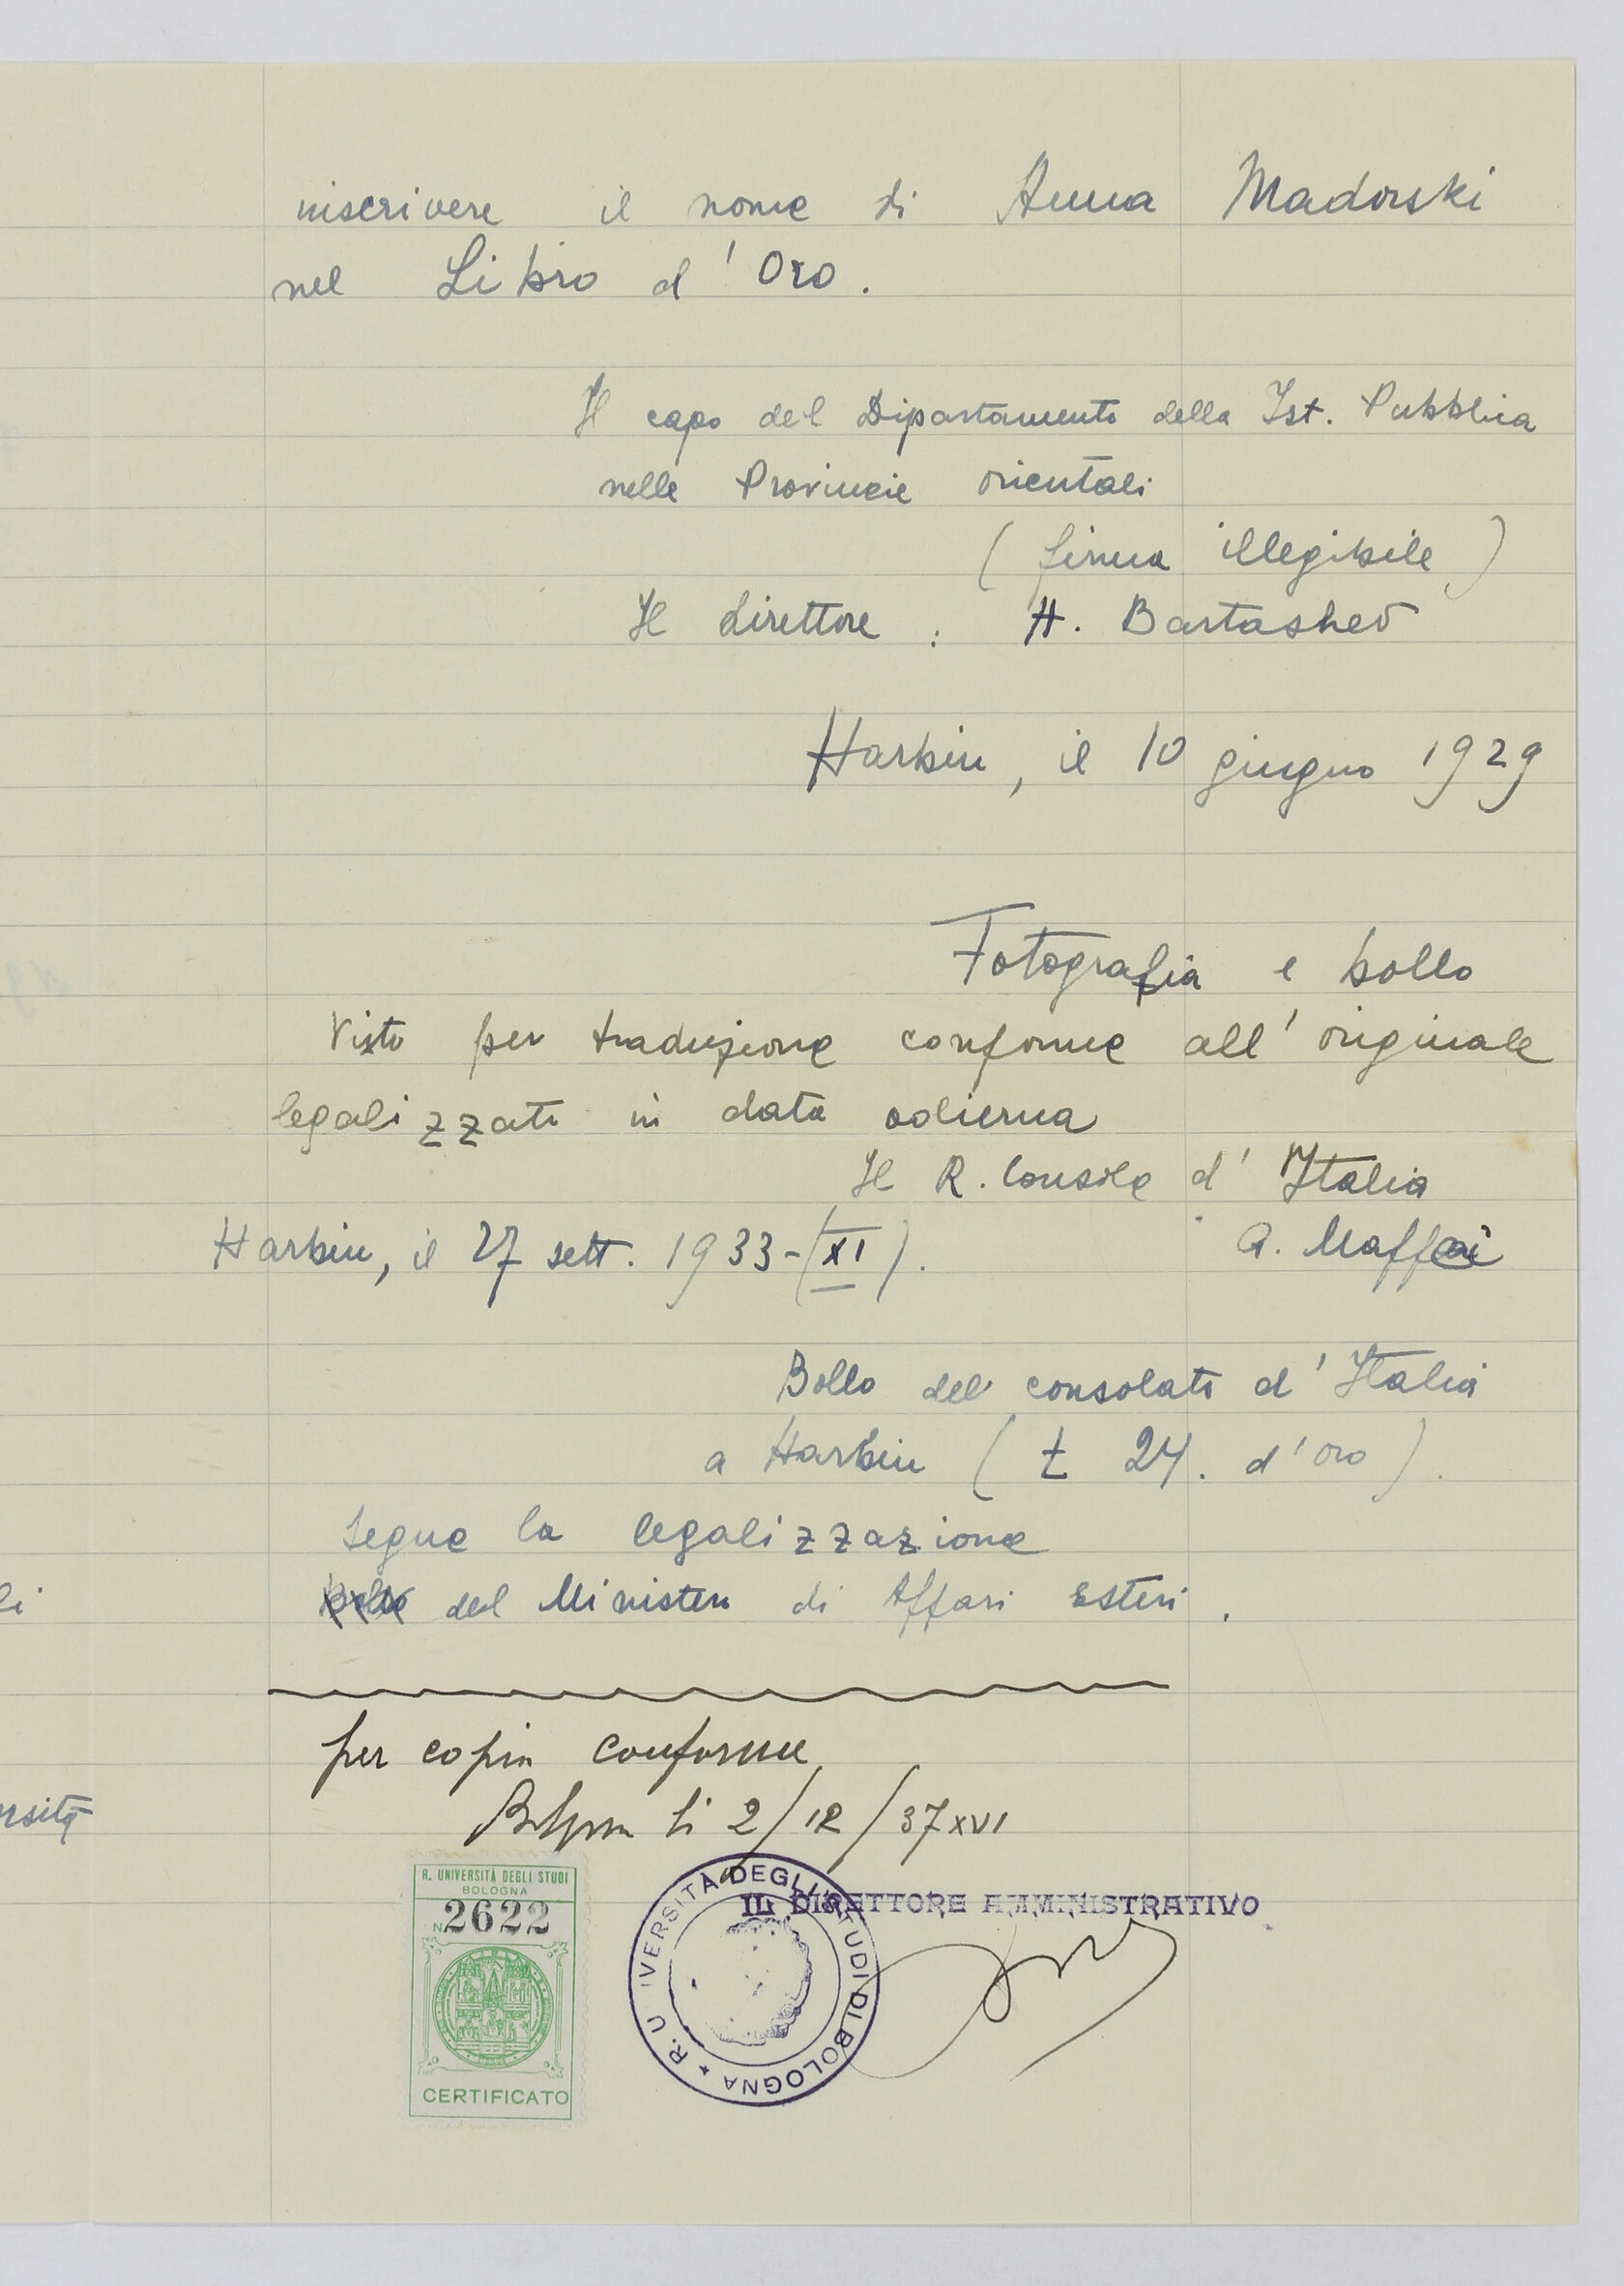 inscrivere il nome di Anna Madorski
nel Libro d'Oro.
Il capo del Dipartamento della Ist. Pubblica
nelle Provincie orientali
(firma illegibile)
Il Direttore : H. Bartashev
Harbin, il 10 giugno 1929
Fotografia e bollo
Visto per traduzione conforme all'originale
legalizzato in data odierna
Il R. Console d'Italia
Harbin, il 27 sett. 1933-(XI). A. Maffei
Bollo del consolato d'Italia
a Harbin (£ 24. d'oro).
Segue la legalizzazione
del Ministero di Affari Esteri.
per copia conforme
Bologna li 2/12/37 XVI
R. UNIVERSITÀ DEGLI STUDI
BOLOGNA
N 2622
CERTIFICATO
R. UNIVERSITÀ DEGLI STUDI DI BOLOGNA
IL DIRETTORE AMMINISTRATIVO